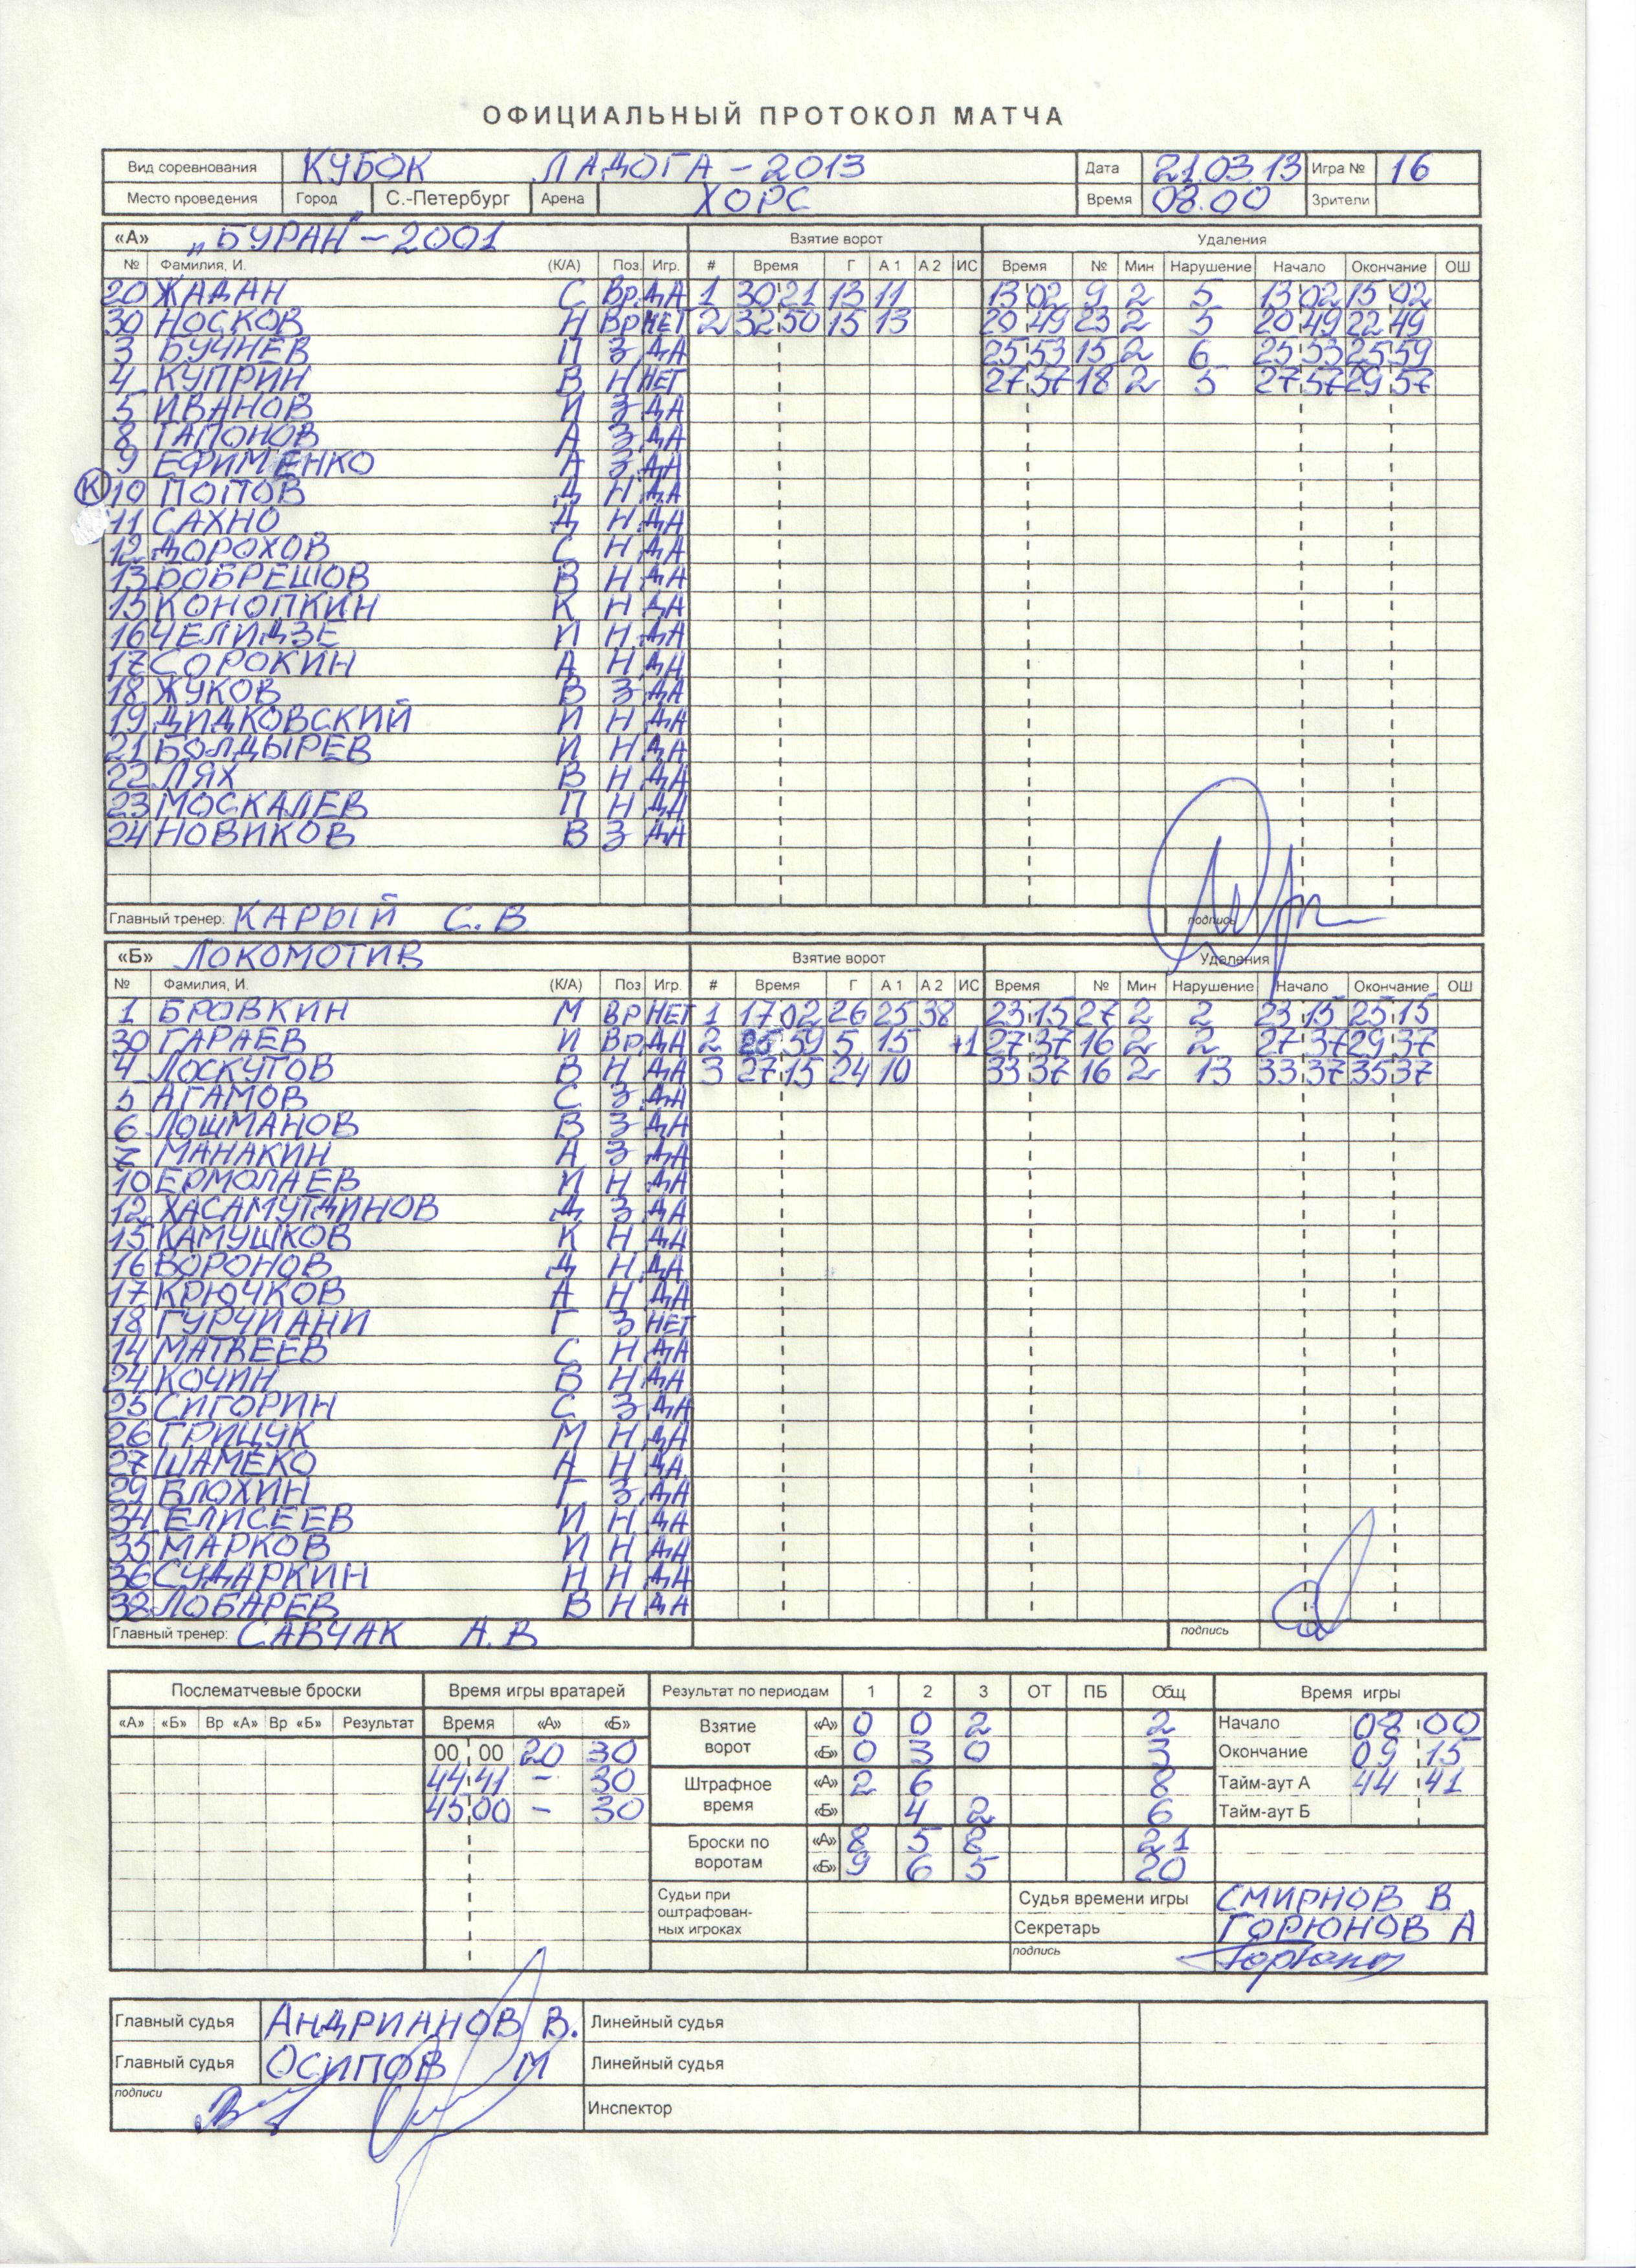 ОФИЦИАЛЬНЫЙ ПРОТОКОЛ МАТЧА
Вид соревнования КУБОК ЛАДОГА - 2013 Дата 21.03.13 Игра № 16
Место проведения Город С.-Петербург Арена ХОРС Время 08.00 Зрители
«А» „БУРАН" - 2001 Взятие ворот Удаления
№ Фамилия, И. (К/А) Поз. Игр. # Время Г А 1 А 2 ИС Время № Мин Нарушение Начало Окончание ОШ
20 ЖАДАН С Вр. ДА 1 30 21 13 11 13 02 9 2 5 13 02 15 02
30 НОСКОВ Н Вр НЕТ 2 32 50 15 13 20 49 23 2 5 20 49 22 49
3 БУЧНЕВ П З ДА 25 53 15 2 6 25 53 25 59
4 КУПРИН В Н НЕТ 27 57 18 2 5 27 57 29 57
5 ИВАНОВ И З ДА
8 ГАПОНОВ А З ДА
9 ЕФИМЕНКО А З ДА
К 10 ПОПОВ Д Н ДА
11 САХНО Д Н ДА
12 ДОРОХОВ С Н ДА
13 БОБРЕШОВ В Н ДА
15 КОНОПКИН К Н ДА
16 ЧЕЛИДЗЕ И Н ДА
17 СОРОКИН А Н ДА
18 ЖУКОВ В З ДА
19 ДИДКОВСКИЙ И Н ДА
21 БОЛДЫРЕВ И Н ДА
22 ЛЯХ В Н ДА
23 МОСКАЛЕВ П Н ДА
24 НОВИКОВ В З ДА
Главный тренер: КАРЫЙ С.В подпись
«Б» ЛОКОМОТИВ Взятие ворот Удаления
№ Фамилия, И. (К/А) Поз. Игр. # Время Г А 1 А 2 ИС Время № Мин Нарушение Начало Окончание ОШ
1 БРОВКИН М ВР НЕТ 1 17 02 26 25 38 23 15 27 2 2 23 15 25 15
30 ГАРАЕВ И Вр. ДА 2 25 59 5 15 +1 27 37 16 2 2 27 37 29 37
4 ЛОСКУТОВ В Н ДА 3 27 15 24 10 33 37 16 2 13 33 37 35 37
5 АГАМОВ С З ДА
6 ЛОШМАНОВ В З ДА
7 МАНАКИН А З ДА
10 ЕРМОЛАЕВ И Н ДА
12 ХАСАМУТДИНОВ Д З ДА
15 КАМУШКОВ К Н ДА
16 ВОРОНОВ Д Н ДА
17 КРЮЧКОВ А Н ДА
18 ГУРЧИАНИ Г З НЕТ
14 МАТВЕЕВ С Н ДА
24 КОЧИН В Н ДА
25 СИГОРИН С З ДА
26 ГРИЦУК М Н ДА
27 ШАМЕКО А Н ДА
29 БЛОХИН Г З ДА
34 ЕЛИСЕЕВ И Н ДА
35 МАРКОВ И Н ДА
36 СУДАРКИН Н Н ДА
38 ЛОБАРЕВ В Н ДА
Главный тренер: САВЧАК А.В подпись
Послематчевые броски Время игры вратарей Результат по периодам 1 2 3 ОТ ПБ Общ Время игры
«А» «Б» Вр «А» Вр «Б» Результат Время «А» «Б» Взятие ворот «А» 0 0 2 2 Начало 08 00
00 00 20 30 «Б» 0 3 0 3 Окончание 09 15
44 41 - 30 Штрафное время «А» 2 6 8 Тайм-аут А 44 41
45 00 - 30 «Б» 4 2 6 Тайм-аут Б
Броски по воротам «А» 8 5 8 21
«Б» 9 6 5 20
Судьи при оштрафован-ных игроках Судья времени игры СМИРНОВ В.
Секретарь ГОРЮНОВ А
подпись
Главный судья АНДРИАНОВ В. Линейный судья
Главный судья ОСИПОВ М Линейный судья
подписи Инспектор